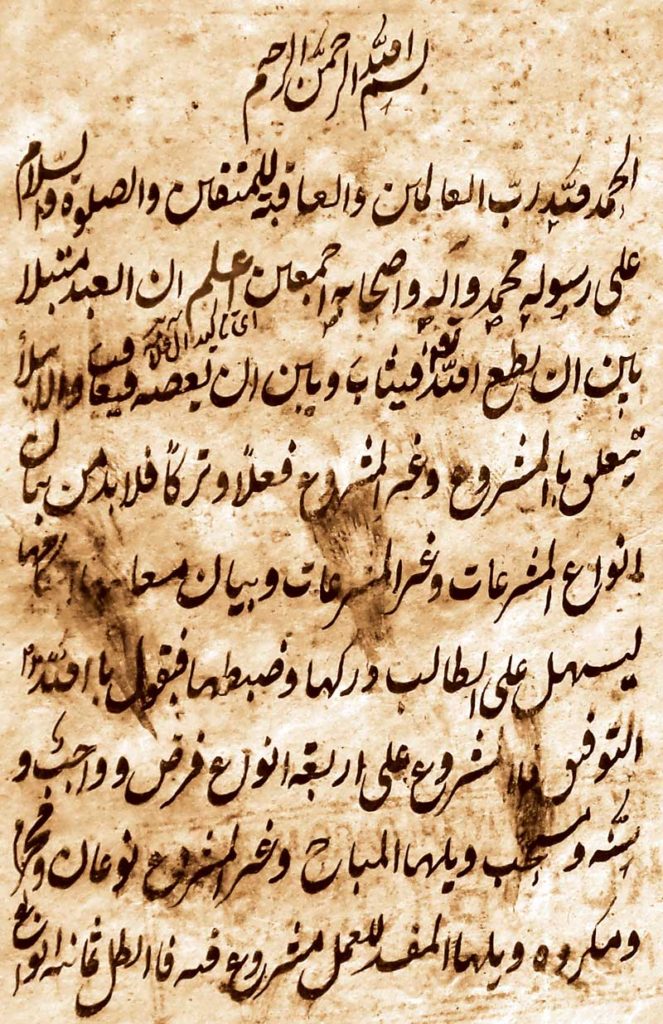 بسم الله الرحمن الرحيم
الحمد لله رب العالمين والعاقبة للمتقين والصلوة والسلام
على رسوله محمد وآله واصحابه اجمعين اعلم ان العبد مبتلا
بين ان يطع الله فيثاب وبين ان يعصه فيعاقب والابتلأ
يتعلق بالمشروع وغير المشروع فعلاً وتركاً فلا بد من بيان
انواع المشرعات وغير المشرعات وبيان معانيها واحكامها
ليسهل على الطالب دركها وضبطها فيقول بالله
التوفيق المشروع على اربعة انواع فرض وواجب و
سنة ومستحب ويلها المباح وغير المشروع نوعان محرم
ومكروه ويلها المفسد للعمل مشروع فيه فالكل ثمانية انواع